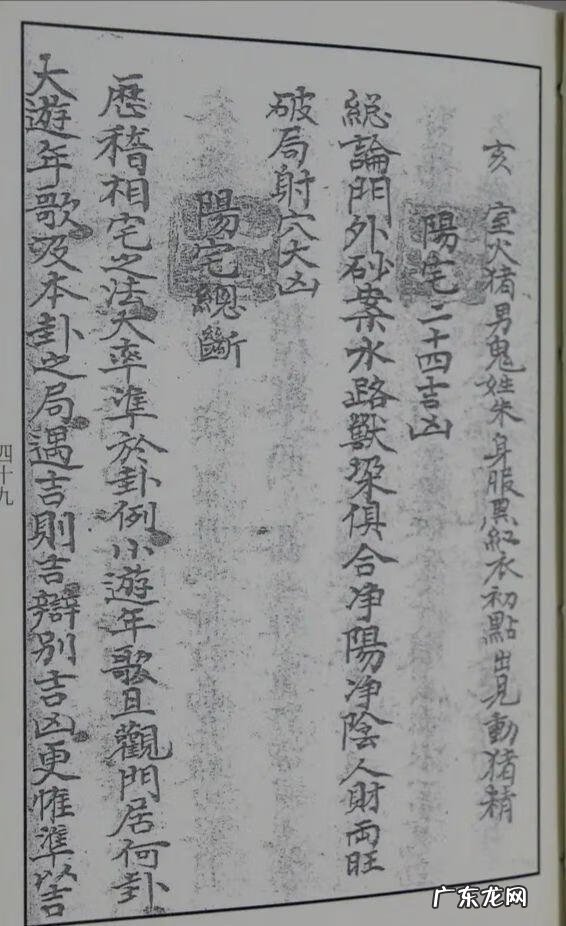 亥 室火猪男鬼姓朱身服黑紅衣初點出見動猪精
陽宅二十四吉凶
総論門外砂案水路獸梁俱合净陽净陰人財両旺
破局射穴大凶
陽宅總斷
歷稽相宅之法大率準於卦例小遊年歌且觀門居何卦
大遊年歌及本卦之局遇吉則吉辯別吉凶更惟準以吉
四十九
广东龙网